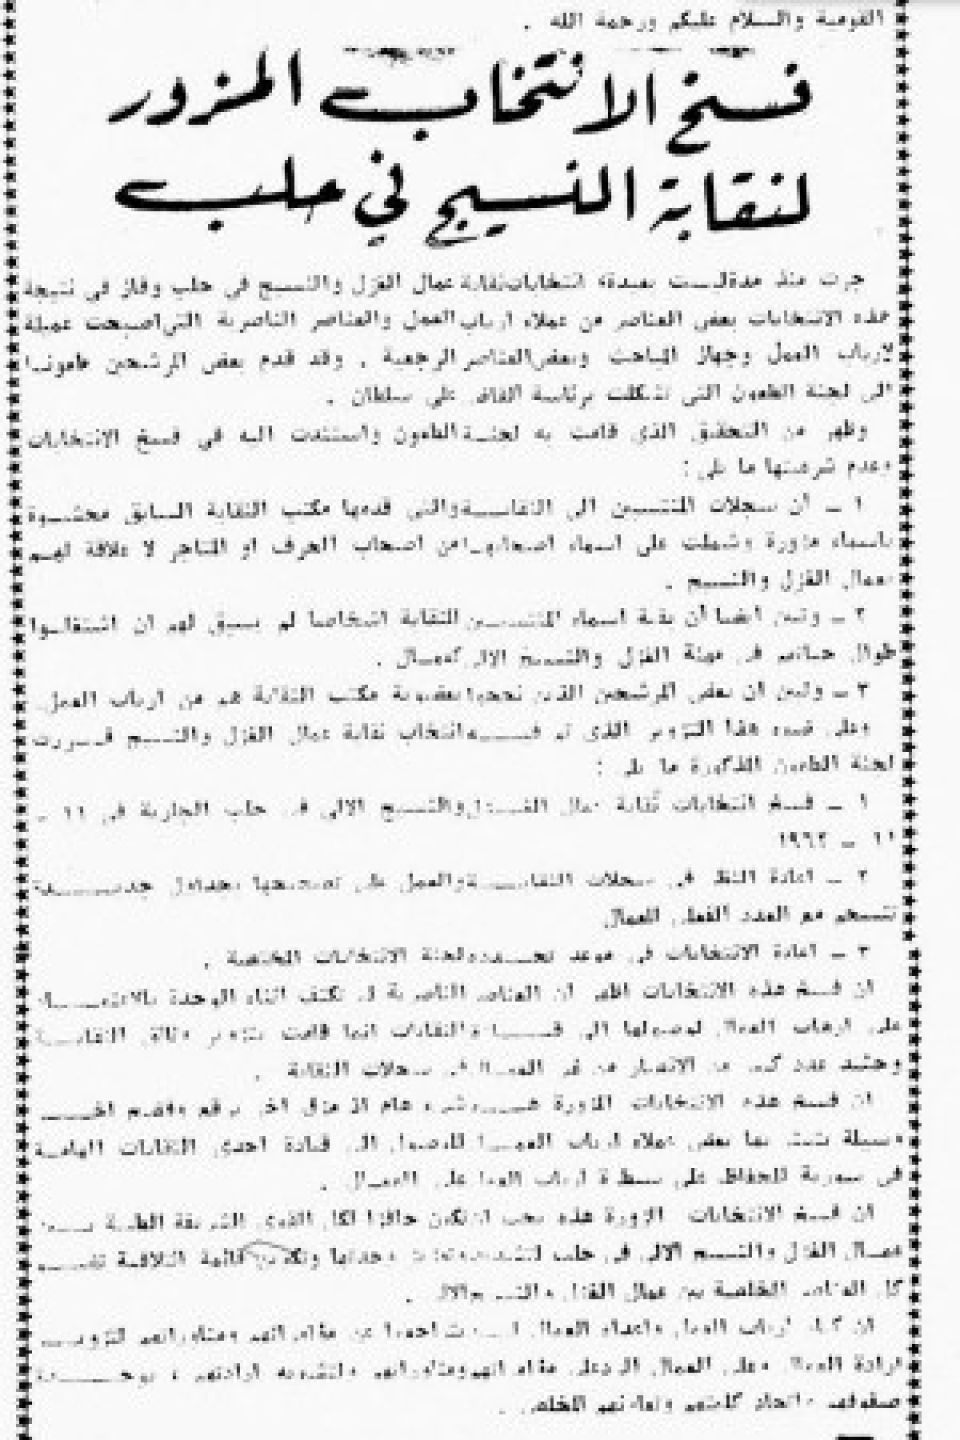 القومية والسلام عليكم ورحمة الله .
فسخ الانتخاب المزور
لنقابة النسيج في حلب
جرت منذ مدة ليست بعيدة انتخابات نقابة عمال الغزل والنسيج في حلب وفاز في نتيجة
هذه الانتخابات بعض العناصر من عملاء ارباب العمل والعناصر الناصرية التي اصبحت عميلة
لارباب العمل وجهاز المباحث وبعض العناصر الرجعية . وقد قدم بعض المرشحين طعونا
الى لجنة الطعون التي تشكلت برئاسة القاضي علي سلطان .
وظهر من التحقيق الذي قامت به لجنة الطعون واستندت اليه في فسخ الانتخابات
وعدم شرعيتها ما يلي :
١ ـ ان سجلات المنتسبين الى النقابة والتي قدمها مكتب النقابة السابق محشوة
باسماء مزورة وشملت على اسماء اصحابها من اصحاب الحرف او المتاجر لا علاقة لهم
بعمال الغزل والنسيج .
٢ ـ وتبين ايضا ان بقية اسماء المنتسبين للنقابة اشخاصا لم يسبق لهم ان اشتغلوا
طوال حياتهم في مهنة الغزل والنسيج الالي كعمال .
٣ ـ وتبين ان بعض المرشحين الذين نجحوا بعضوية مكتب النقابة هم من ارباب العمل .
وعلى ضوء هذا التزوير الذي تم في انتخاب نقابة عمال الغزل والنسيج قررت
لجنة الطعون المذكورة ما يلي :
١ ـ فسخ انتخابات نقابة عمال الغزل والنسيج الالي في حلب الجارية في ١١ ـ
١١ ـ ١٩٦٢
٢ ـ اعادة النظر في سجلات النقابة والعمل على تصحيحها بجداول جديدة
تنسجم مع العدد الفعلي للعمال
٣ ـ اعادة الانتخابات في موعد تحدده لجنة الانتخابات المختصة .
ان فسخ هذه الانتخابات اظهر ان العناصر الناصرية لم تكتف اثناء الوحدة بالاعتماد
على ارهاب العمال لوصولها الى قيادة النقابات انما قامت بتزوير وثائق النقابة
وحشد عدد كبير من الانصار من غير العمال في سجلات النقابة .
ان فسخ هذه الانتخابات المزورة
وسيلة يتشبث بها بعض عملاء ارباب العمل للوصول الى قيادة احدى النقابات الهامة
في سورية للحفاظ على سيطرة ارباب العمل على العمال .
ان فسخ الانتخابات المزورة هذه يجب ان تكون حافزا لكل القوى الشريفة الطيبة بين
عمال الغزل والنسيج الالي في حلب لتشديد وتعزيز وحدتها وتكوين قائمة ائتلافية تضم
كل العناصر المخلصة بين عمال الغزل والنسيج الالي .
ان كيد ارباب العمل واعداء العمال
ارادة العمال وعلى العمال الرد على مؤامراتهم ومناوراتهم ولتشويه ارادتهم ، بوحدة
صفوفهم واتحاد كلمتهم وتعاونهم المخلص .